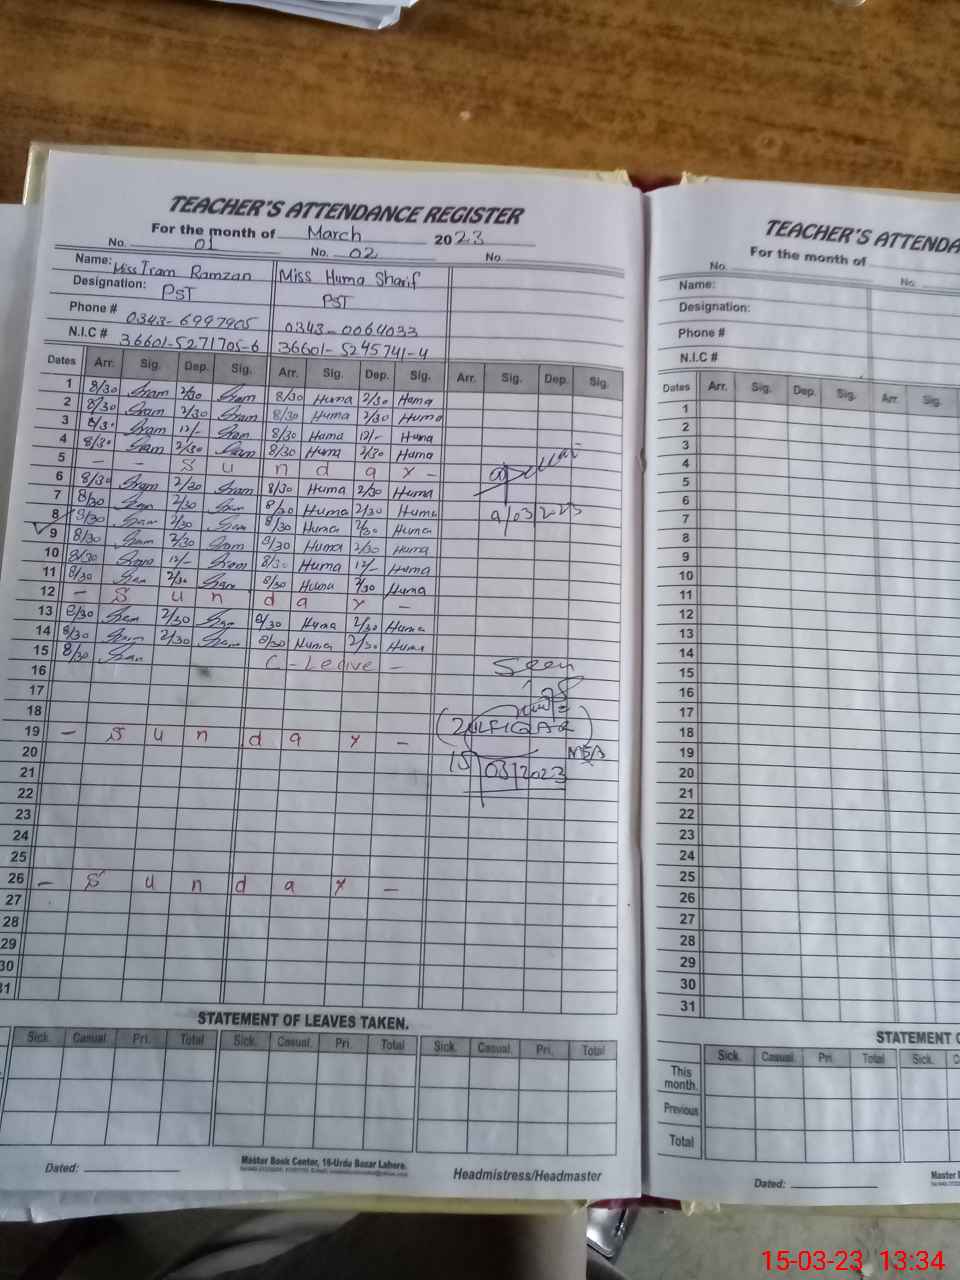 TEACHER'S ATTENDANCE REGISTER
For the month of March 2023
No. 01 No. 02 No.
Name: Miss Iram Ramzan Miss Huma Sharif
Designation: PST PST
Phone # 0343-6997905 0343-0064033
N.I.C # 36601-5271705-6 36601-5245741-4
Dates Arr. Sig. Dep. Sig. Arr. Sig. Dep. Sig. Arr. Sig. Dep. Sig.
1 8/30 Iram 2/30 Iram 8/30 Huma 2/30 Huma
2 8/30 Iram 2/30 Iram 8/30 Huma 2/30 Huma
3 8/30 Iram 12/- Iram 8/30 Huma 12/- Huma
4 8/30 Iram 2/30 Iram 8/30 Huma 2/30 Huma
5 - - S u n d a y -
6 8/30 Iram 2/30 Iram 8/30 Huma 2/30 Huma
7 8/30 Iram 2/30 Iram 8/30 Huma 2/30 Huma
8 8/30 Iram 2/30 Iram 8/30 Huma 2/30 Huma
9 8/30 Iram 2/30 Iram 8/30 Huma 2/30 Huma
9/03/2023
10 8/30 Iram 12/- Iram 8/30 Huma 12/- Huma
11 8/30 Iram 2/30 Iram 8/30 Huma 2/30 Huma
12 - S u n d a y -
13 8/30 Iram 2/30 Iram 8/30 Huma 2/30 Huma
14 8/30 Iram 2/30 Iram 8/30 Huma 2/30 Huma
15 8/30 Iram C-Leave -
Seen
16
17
18
(ZULFIQAR)
MEA
15/03/2023
19 - S u n d a y -
20
21
22
23
24
25
26 - S u n d a y -
27
28
29
30
31
STATEMENT OF LEAVES TAKEN.
Sick. Casual. Pri. Total Sick. Casual. Pri. Total Sick. Casual. Pri. Total
Dated:
Master Book Center, 16-Urdu Bazar Lahore.
Headmistress/Headmaster
TEACHER'S ATTENDA
For the month of
No. No.
Name:
Designation:
Phone #
N.I.C #
Dates Arr. Sig. Dep. Sig. Arr. Sig.
1
2
3
4
5
6
7
8
9
10
11
12
13
14
15
16
17
18
19
20
21
22
23
24
25
26
27
28
29
30
31
STATEMENT O
Sick. Casual. Pri. Total Sick. C
This month.
Previous
Total
Dated:
Master
15-03-23 13:34